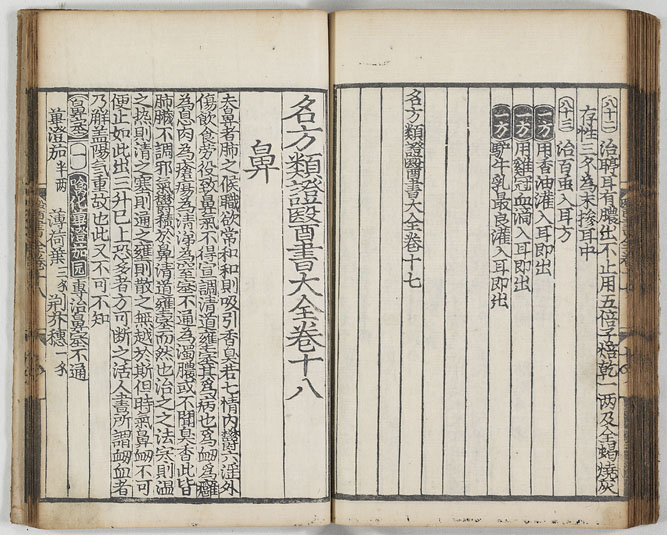 八十二 治聤耳有膿出不止用五倍子焙乾一两及全蝎燒灰
存性三夕為末摻耳中
八十三 治百虫入耳方
一方 用香油灌入耳即出
一方 用雞冠血滴入耳即出
一方 驴牛乳最良灌入耳即出
名方類證醫書大全卷十七
名方類證醫書大全卷十八
鼻
夫鼻者肺之候職欲常和和則吸引香臭若七情内鬱六淫外
傷飲食勞役致鼻氣不得宣調清道壅塞其為病也為衂為癰
為息肉為瘡瘍為清涕為窒塞不通為濁膿或不聞臭香此皆
肺臟不調邪氣鬱積於鼻清道壅塞而然也治之之法寒則温
之热則清之塞則通之壅則散之無越於斯但時氣鼻衂不可
便止如此出三升已上恐多者方可断之活人書所謂衂血者
乃解盖陽氣重故也此又不可不知
鼻塞 一 澄茄圓 專治鼻塞不通
蓽澄茄半两 薄荷葉三夕 荆芥穗一夕